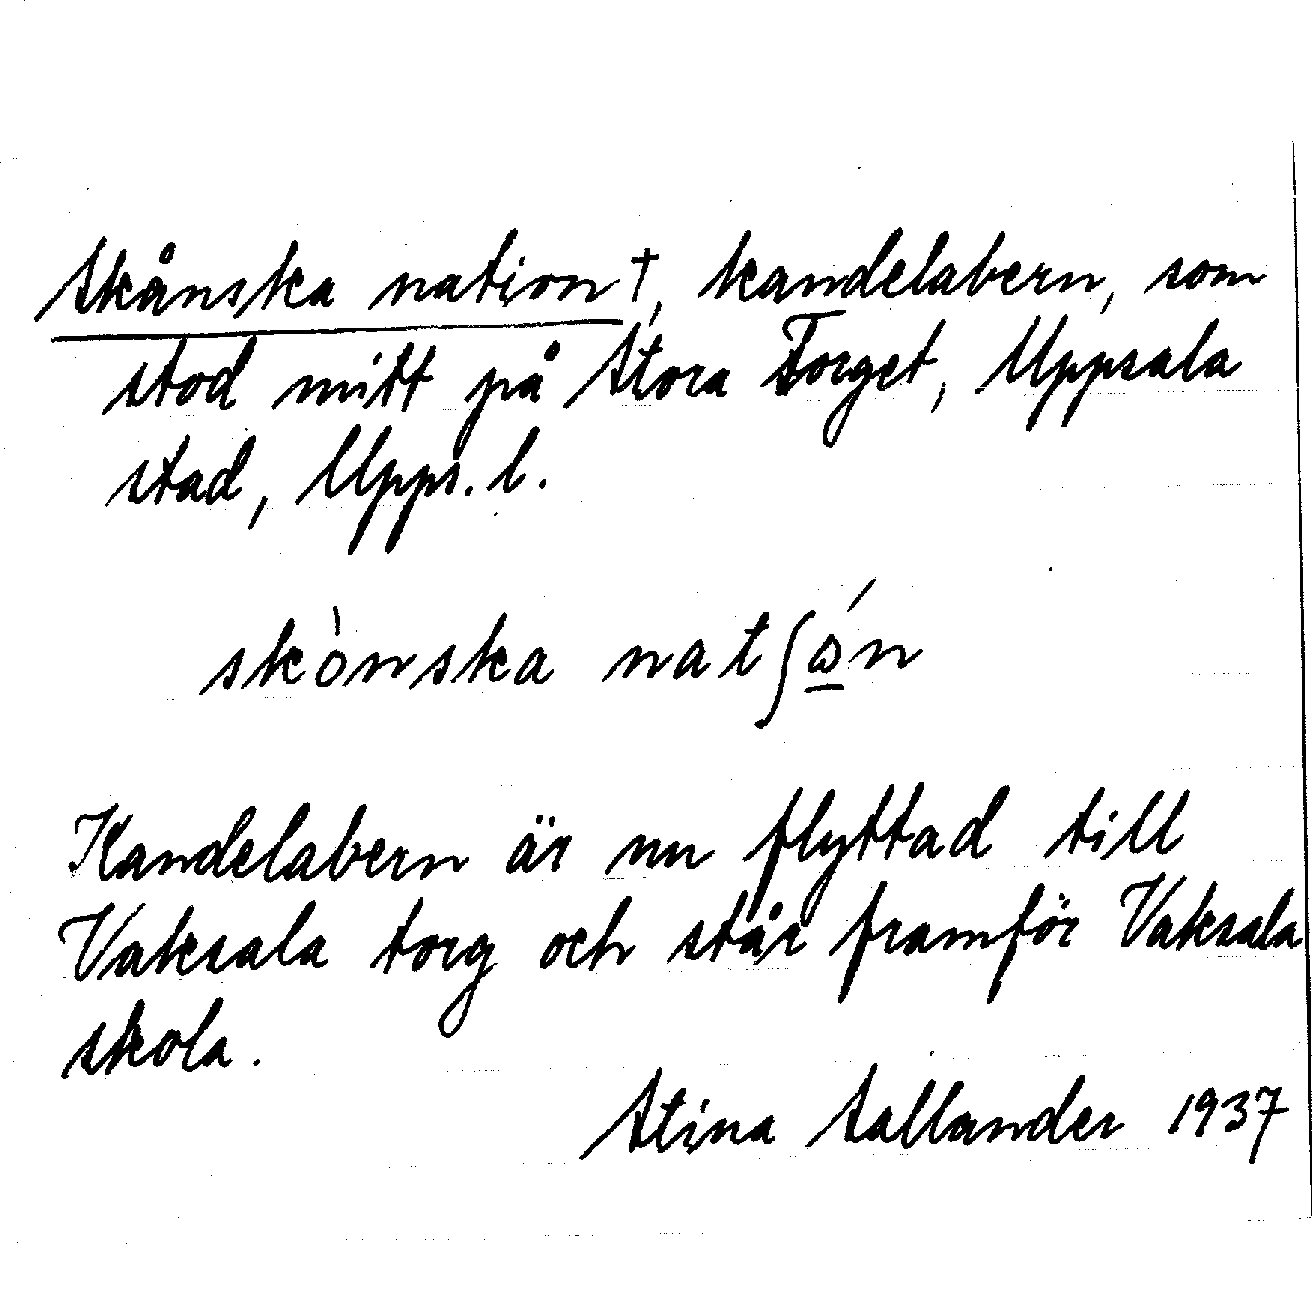 Skånska nation †, kandelabern, som
stod mitt på Stora Torget, Uppsala
stad, Upps. l.
skònska nat∫ó̲n
Kandelabern är nu flyttad till
Vaksala torg och står framför Vaksala
skola.
Stina Sallander 1937